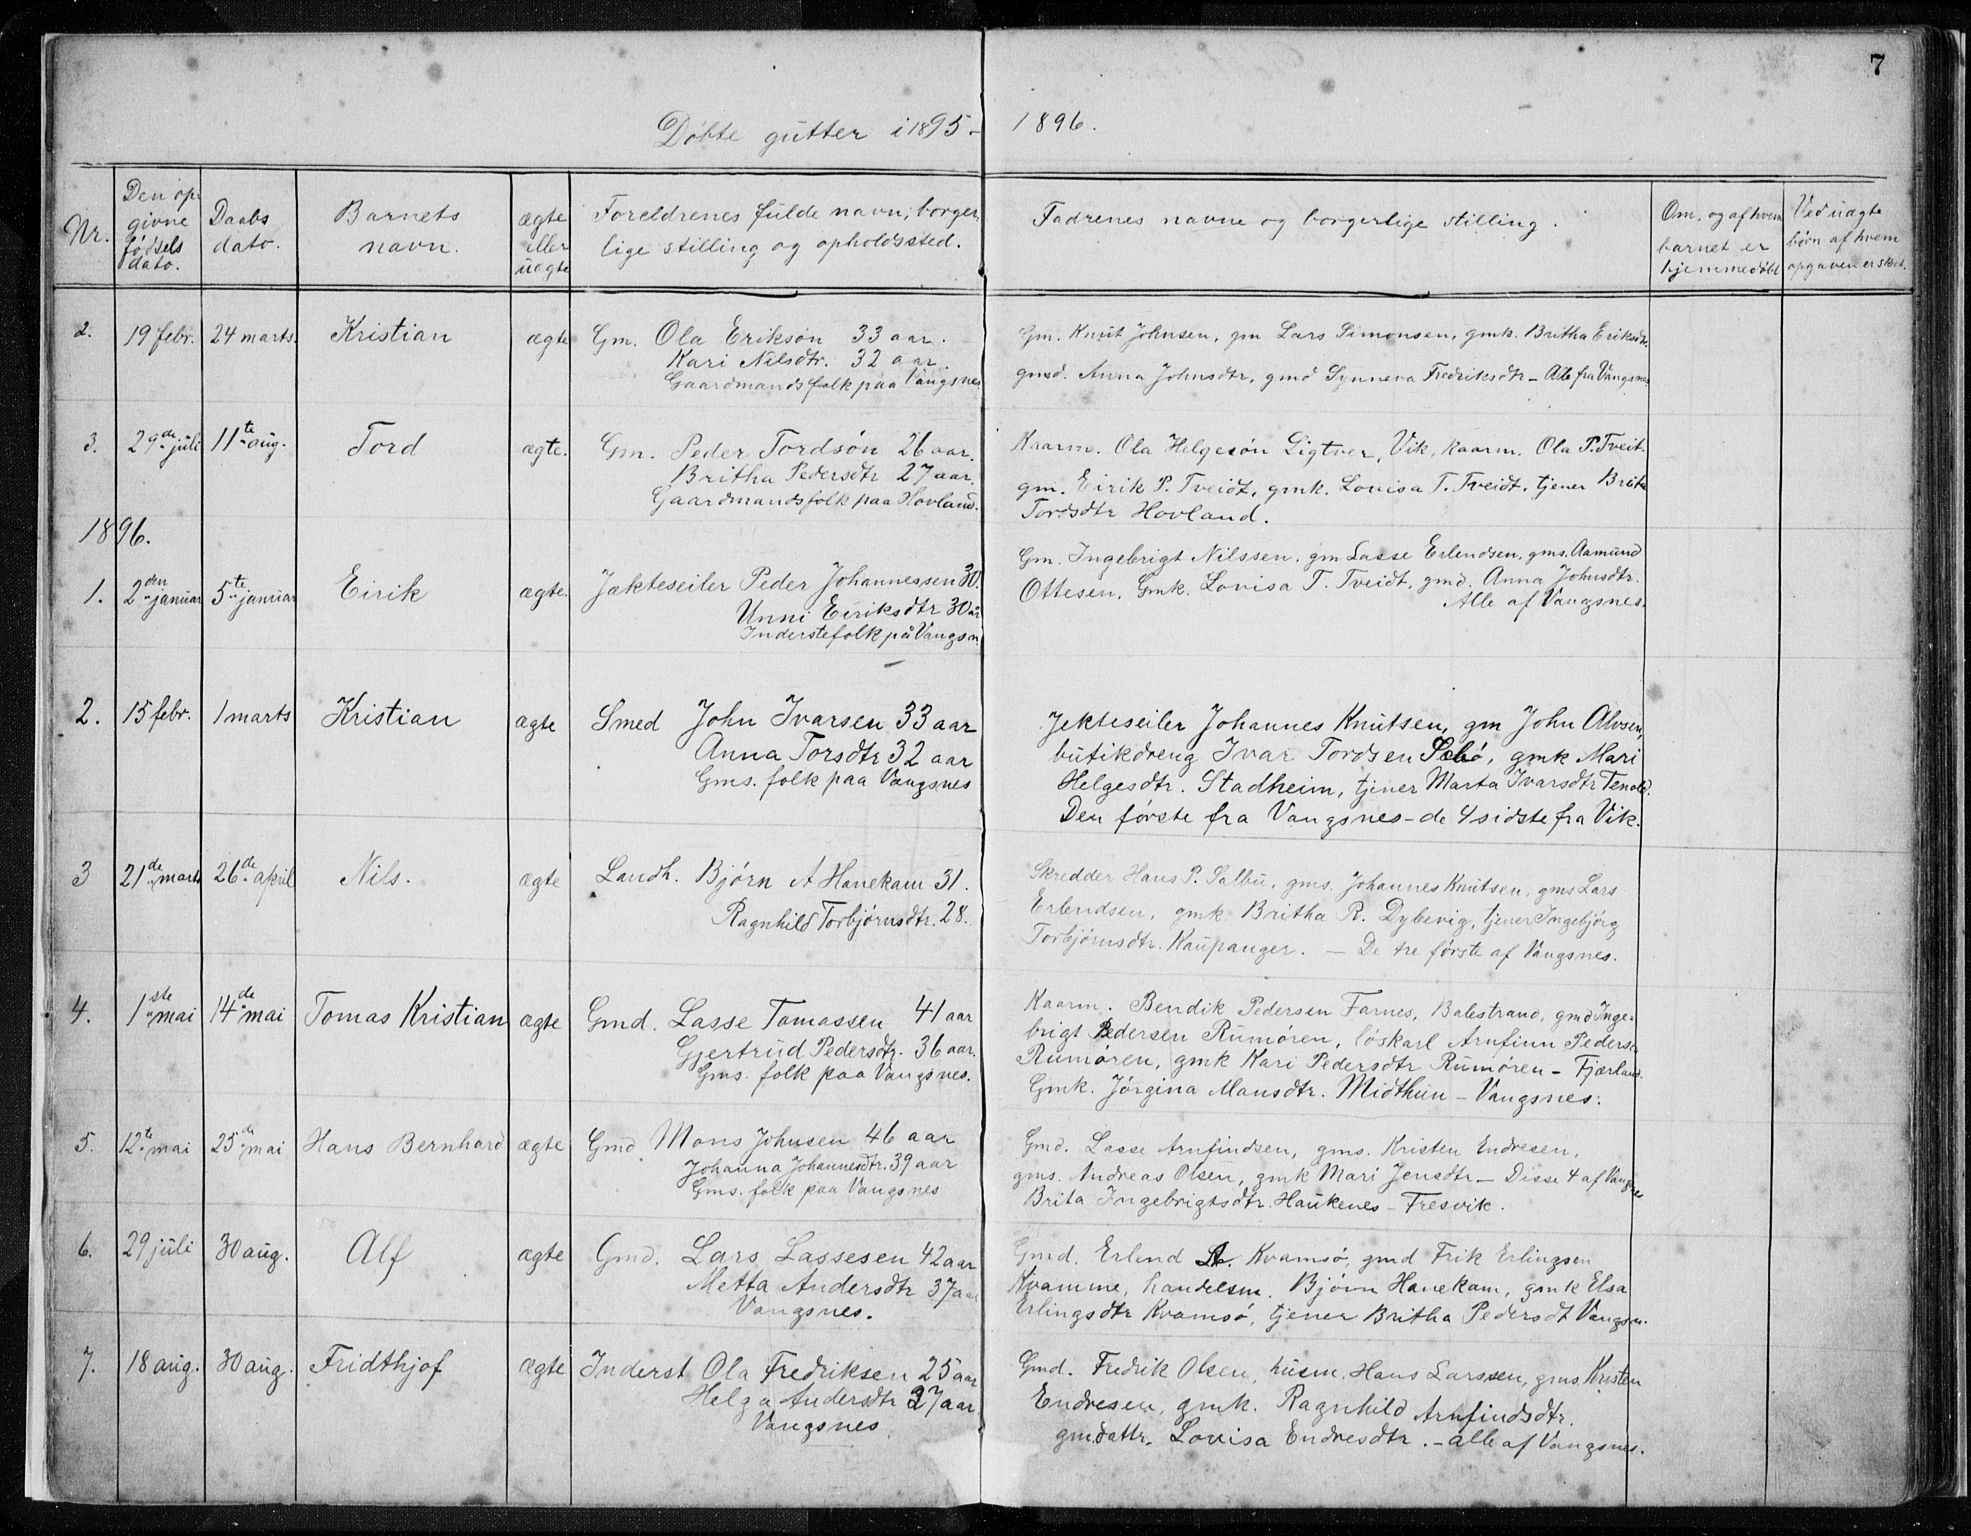 7
Döbte gutter i 1895 - 1896.
Nr.
Den op-
givne
födsels
dato.
Daabs
dato.
Barnets
navn.
ægte
eller
uægte
Foreldrenes fulde navn, borger-
lige stilling og opholdssted.
Fadrenes navne og borgerlige stilling.
Om, og af hvem
barnet er
hjemmedöbt
Ved uægte
börn af hvem
opgaven er sket.
2. 19 febr. 24 marts. Kristian ægte Gm. Ola Eriksön 33 aar.
Kari Nilsdtr. 32 aar.
Gaardmandsfolk paa Vangsnes
Gm. Knut Johnsen, gm Lars Simonsen, gmk. Britha Eriksdtr.
gmd. Anna Johnsdtr, gmd Synneva Fredriksdtr - Alle fra Vangsnes
3. 29de juli 11te aug. Tord ægte. Gm. Peder Tordsön 26 aar.
Britha Pedersdtr 27 aar.
Gaardmandsfolk paa Hovland.
Kaarm. Ola Helgesön Ligtvor, Vik, kaarm. Ola P. Tveit.
gm. Eirik P. Tveidt, gmk. Lovisa T. Tveidt, tjener Brita
Tordsdtr Hovland.
1896.
1. 2den januar 5te januar Eirik ægte. Jækteseiler Peder Johannessen 30.
Unni Eiriksdtr 30 aar
Inderstefolk på Vangsn.
Gm. Ingebrigt Nilssen, gm Lasse Erlendsen, gms. Aamund
Ottesen, Gmk. Lovisa T. Tveidt, gmd. Anna Johnsdtr.
Alle af Vangsnes.
2. 15 febr. 1 marts Kristian ægte Smed John Ivarsen 33 aar
Anna Torsdtr 32 aar
Gms. folk paa Vangsnes
Jekteseiler Johannes Knutsen, gm John Alvsen,
butikdreng Ivar Tordsen Sebö, gmk Mari
Helgesdtr. Stadheim, tjener Marta Ivarsdtr Tenold.
Den förste fra Vangsnes - de 4 sidste fra Vik.
3 21de marts 26de april Nils. ægte Landh. Björn A Hanekam 31.
Ragnhild Torbjörnsdtr. 28.
Skredder Hans P. Salbu, gms. Johannes Knutsen, gms Lars
Erlendsen, gmk Britha R. Dybevig, tjener Ingebjörg
Torbjörnsdtr. Kaupanger. - De tre förste af Vangsnes.
4. 1ste mai 14de mai Tomas Kristian ægte Gmd. Lasse Tomassen 41 aar
Gjertrud Pedersdtr. 36 aar.
Gms. folk paa Vangsnes.
Kaarm. Bendik Pedersen Farnes, Balestrand, gmd Inge-
brigt Pedersen Rumören, löskarl Arnfinn Pedersen
Rumören, gmk Kari Pedersdtr Rumören - Fjærland.
Gmk. Jörgina Monsdtr. Midthun - Vangsnes.
5. 12te mai 25de mai Hans Bernhard ægte Gmd Mons Johnsen 46 aar
Johanna Johannesdtr. 39 aar
Gms. folk paa Vangsnes
Gmd. Lasse Arnfindsen, gms. Kristen Endresen,
gms. Andreas Olsen, gmk Mari Jensdtr - Disse 4 af Vangsnes
Brita Ingebrigtsdtr. Haukenes - Fresvik.
6. 29 juli 30 aug. Alf ægte Gmd. Lars Lassesen 42 aar
Metta Andersdtr 37 aar
Vangsnes.
Gmd. Erlend A. Kvamsö, gmd Erik Erlingsen
Kvamme, handelsm. Björn Hanekam, gmk Elsa
Erlingsdtr Kvamsö, tjener Britha Pedersdt Vangsn.
7. 18 aug. 30 aug. Fridthjof ægte Inderst Ola Fredriksen 25 aar
Helga Andersdtr 27 aar.
Vangsnes
Gmd. Fredrik Olsen, husm. Hans Larssen, gms. Kristen
Endresen, gmk. Ragnhild Arnfindsdtr.
gmdattr. Lovisa Endresdtr. - alle af Vangsnes.